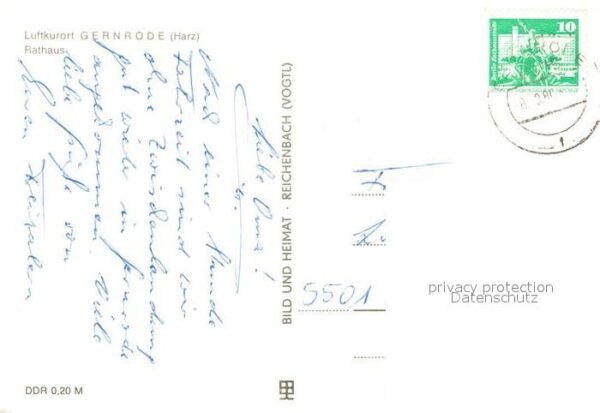 Luftkurort GERNRODE (Harz)
Rathaus
Liebe Oma!
Nach einer Stunde
Fahrzeit sind wir
ohne Zwischenlandung
gut wieder in Gernrode
angekommen. Viele
liebe Grüße von
BILD UND HEIMAT · REICHENBACH (VOGTL)
10
5501
privacy protection
Datenschutz
DDR 0,20 M